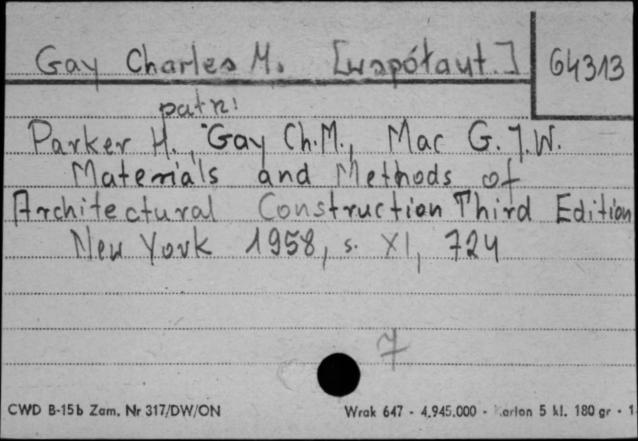 Gay Charles M. [współaut.] 64313
patrz:
Parker H., Gay Ch.M., Mac G.J.W.
Materials and Methods of
Architectural Construction Third Edition
New York 1958, s. XI, 724
7
CWD B-15b Zam. Nr 317/DW/ON Wrak 647 - 4.945.000 - Karton 5 kl. 180 gr - 1